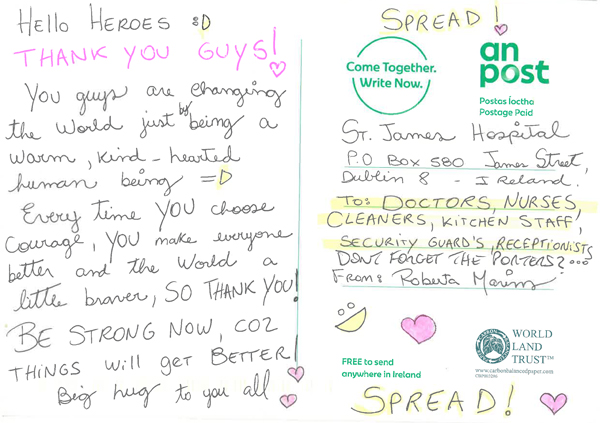 Hello Heroes :D
THANK YOU GUYS!
You guys are changing
the World just by being a
warm, kind-hearted
human being =D
Every time YOU choose
courage, YOU make everyone
better and the World a
little braver, SO THANK YOU!
BE STRONG NOW, COZ
THINGS will get BETTER!
Big hug to you all
SPREAD!
Come Together.
Write Now.
an
post
Postas Íoctha
Postage Paid
St. James Hospital
P.O Box 580 James Street,
Dublin 8 - Ireland.
To: DOCTORS, NURSES,
CLEANERS, KITCHEN STAFF,
SECURITY GUARD'S, RECEPTIONISTS
DON'T FORGET THE PORTERS?...
From: Roberta
FREE to send
anywhere in Ireland
WORLD
LAND
TRUST™
www.carbonbalancedpaper.com
SPREAD!